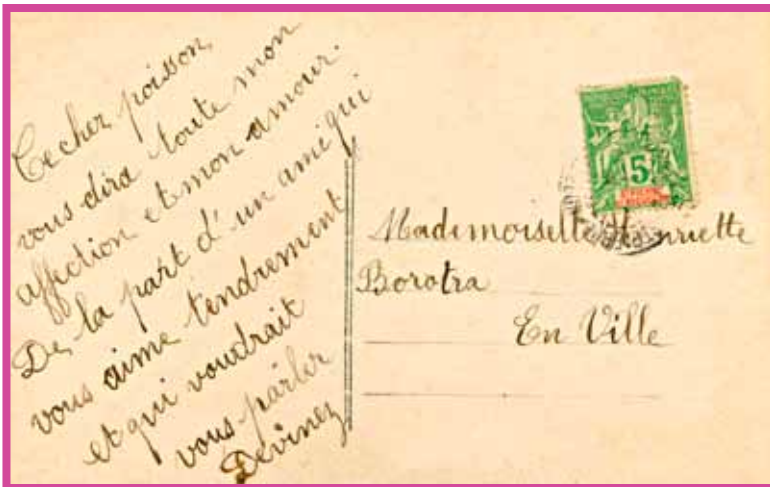 Ce cher poisson
vous dira toute mon
affection et mon amour.
De la part d'un ami qui
vous aime tendrement
et qui voudrait
vous parler
Devinez
5
Mademoiselle Henriette
Borotra
En Ville